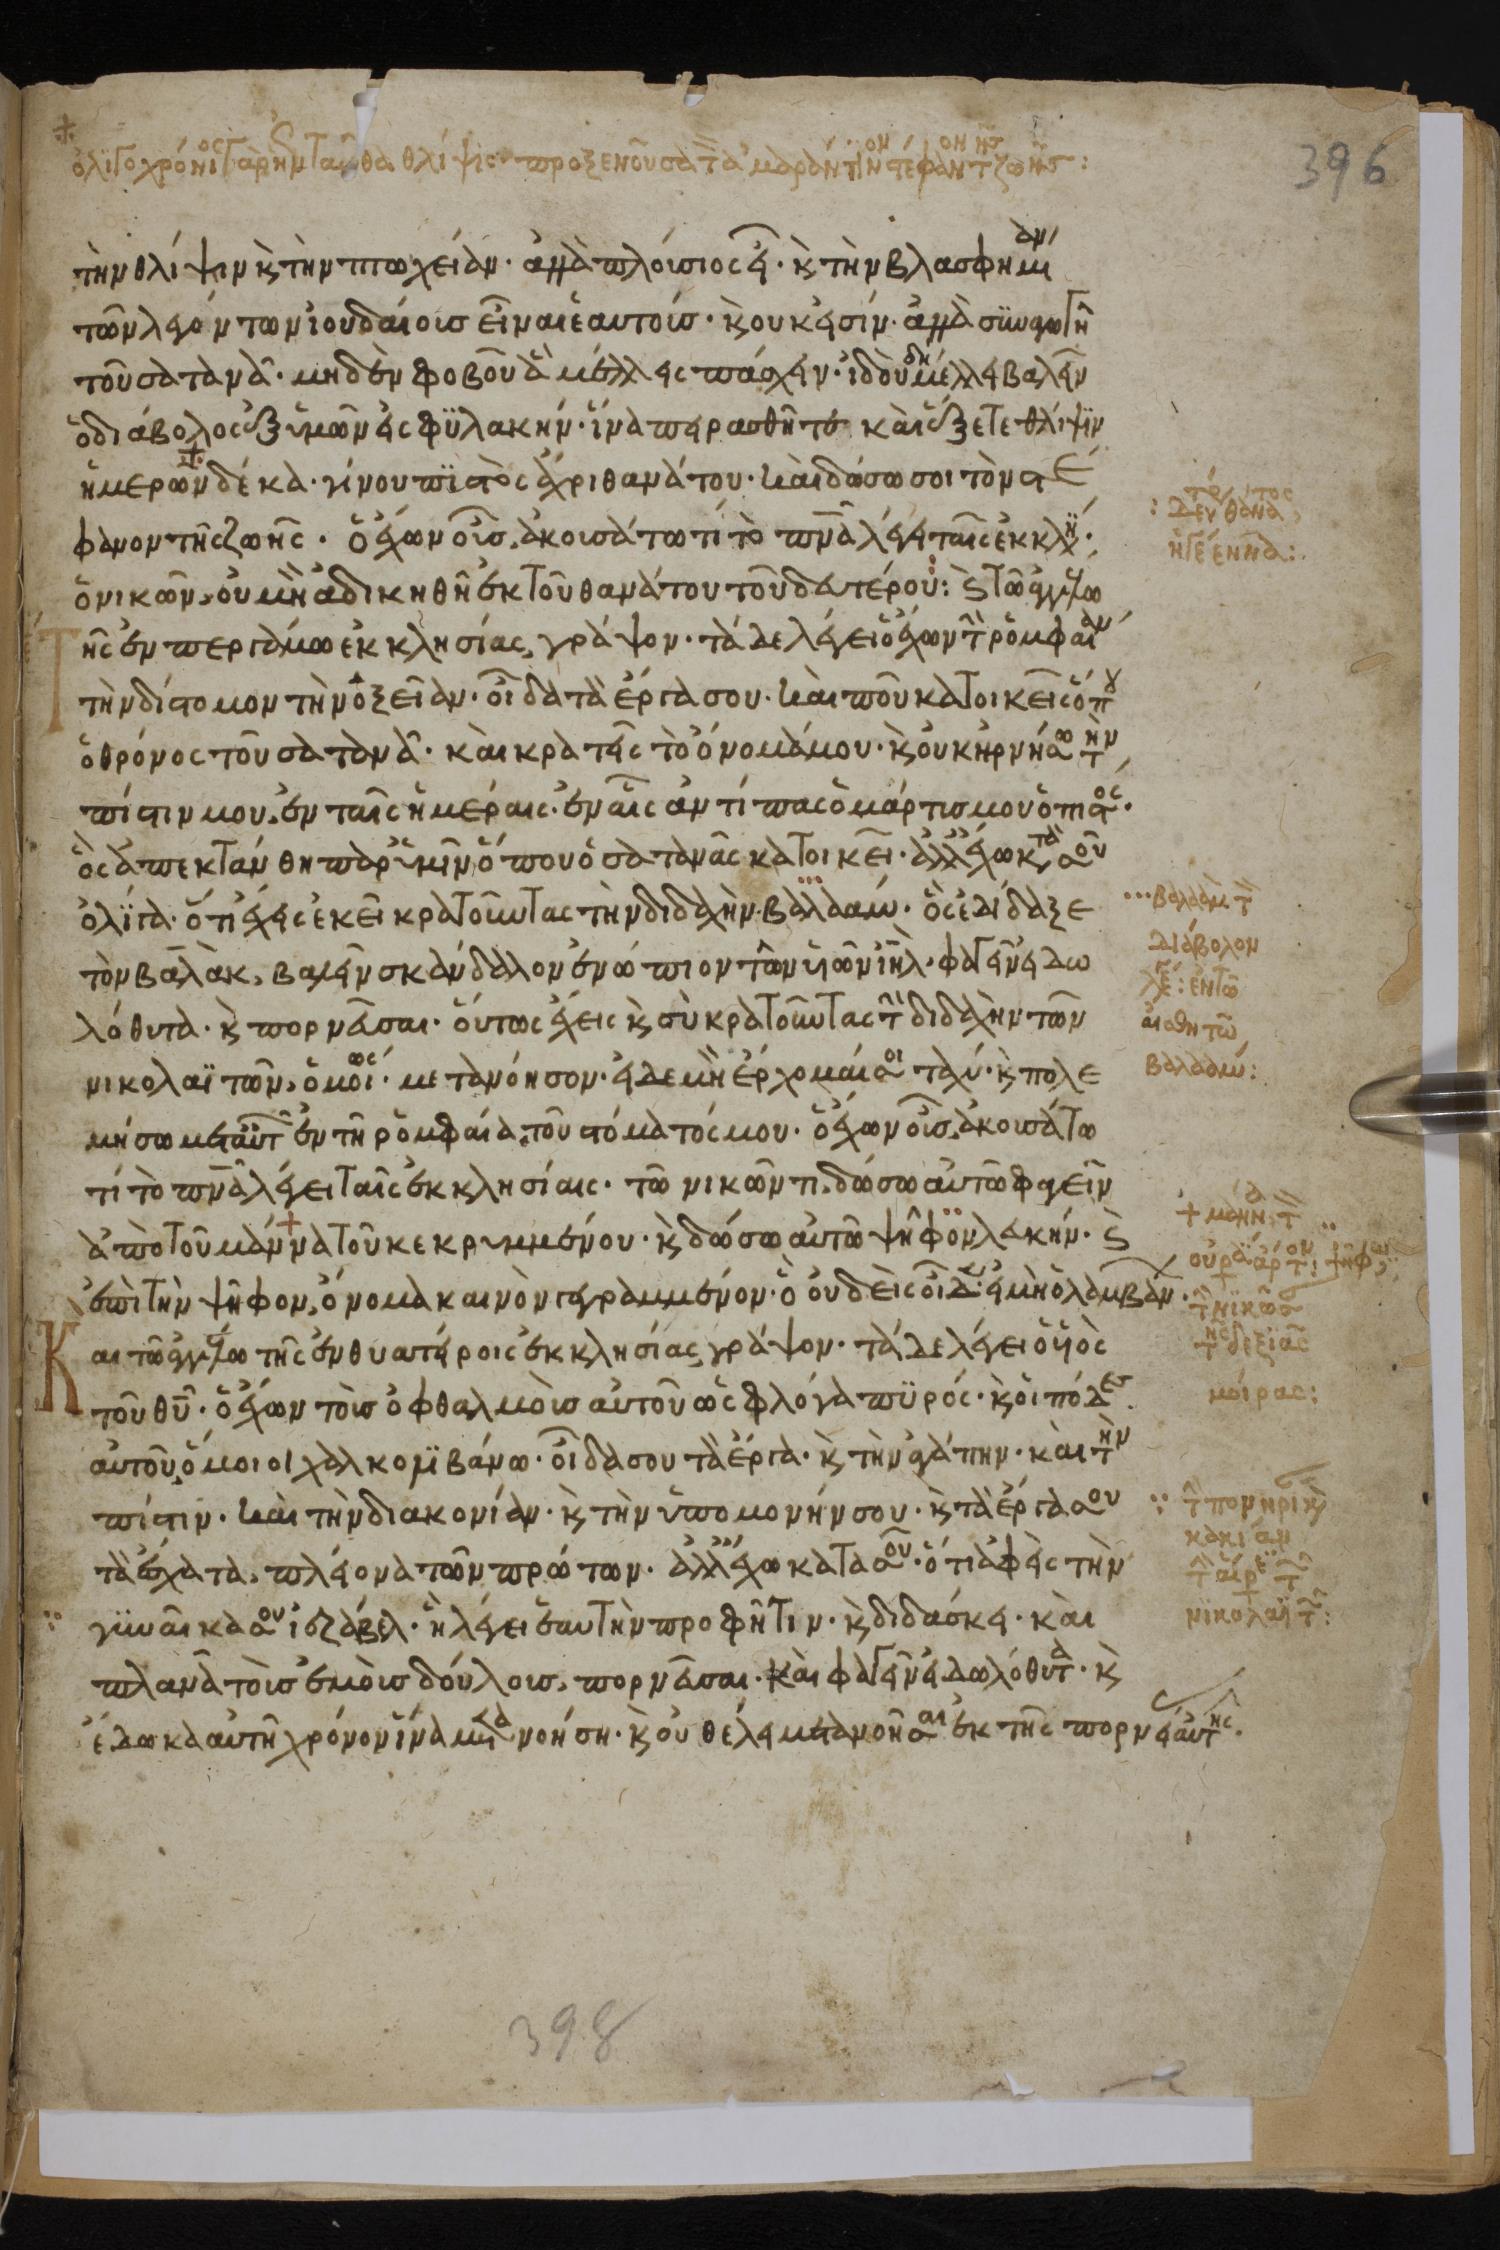 ὀλιγοχρόνιος γὰρ ἡ ἐνταῦθα θλίψις· προξενοῦσα τὸν ἀμαράντινον στέφανον τῆς ζωῆς:
396
τὴν θλίψιν κ τὴν πτωχείαν· ἀλλὰ πλούσιος εἶ· κ τὴν βλασφημίαν
τῶν λεγόντων ἰουδαίους εἶναι ἑαυτούς· κ οὐκ εἰσίν· ἀλλὰ συναγωγὴ
τοῦ σατανᾶ· μηδὲν φοβοῦ ἃ μέλλεις πάσχειν· ἰδοὺ δὴ μέλλει βαλεῖν
ὁ διάβολος ἐξ ὑμῶν εἰς φυλακήν· ἵνα πειρασθῆτε καὶ ἕξετε θλίψιν
ἡμερῶν δέκα· γίνου πιστὸς ἄχρι θανάτου· καὶ δώσω σοι τὸν στέ
φανον τῆς ζωῆς· ὁ ἔχων οὖς, ἀκουσάτω τί τὸ πνᾶ λέγει ταῖς ἐκκλη·
ὁ νικῶν, οὐ μὴ ἀδικηθῇ ἐκ τοῦ θανάτου τοῦ δευτέρου: κ τῶ ἀγγέλω
Τῆς ἐν περγάμω ἐκκλησίας, γράψον· τάδε λέγει ὁ ἔχων τὴν ῥομφαίαν
τὴν δίστομον τὴν ὀξεῖαν· οἶδα τὰ ἔργα σου· καὶ ποῦ κατοικεῖς ὅπου
ὁ θρόνος τοῦ σατανᾶ· καὶ κρατεῖς τὸ ὄνομά μου· κ οὐκ ἠρνήσω τὴν
πίστιν μου, ἐν ταῖς ἡμέραις· ἐν αἷς ἀντίπας ὁ μάρτυς μου ὁ πιστός·
ὃς ἀπεκτάνθη παρ' ὑμῖν ὅπου ὁ σατανᾶς κατοικεῖ· ἀλλ' ἔχω κατὰ σοῦ
ὀλίγα· ὅτι ἔχεις ἐκεῖ κρατοῦντας τὴν διδαχὴν βαλαάμ· ὃς ἐδίδαξε
τὸν βαλὰκ, βαλεῖν σκάνδαλον ἐνώπιον τῶν υἱῶν ἰηλ· φαγεῖν εἰδω
λόθυτα· κ πορνεῦσαι· οὕτως ἔχεις κ σὺ κρατοῦντας τὴν διδαχὴν τῶν
νικολαϊτῶν, ὁμοίως· μετανόησον· εἰ δὲ μὴ ἔρχομαί σοι ταχύ· κ πολε
μήσω μετ' αὐτῶν ἐν τῆ ῥομφαία, τοῦ στόματός μου· ὁ ἔχων οὖς, ἀκουσάτω
τί τὸ πνᾶ λέγει ταῖς ἐκκλησίαις· τῶ νικῶντι, δώσω αὐτῶ φαγεῖν
ἀπὸ τοῦ μάννα τοῦ κεκρυμμένου· κ δώσω αὐτῶ ψῆφον λευκήν· κ
ἐπὶ τὴν ψῆφον, ὄνομα καινὸν γεγραμμένον· ὃ οὐδεὶς οἶδεν εἰ μὴ ὁ λαμβάνων·
Και τῶ ἀγγέλω τῆς ἐν θυατήροις ἐκκλησίας γράψον· τάδε λέγει ὁ υἱὸς
τοῦ θῦ· ὁ ἔχων τοὺς ὀφθαλμοὺς αὐτοῦ ὡς φλόγα πυρός· κ οἱ πόδες
αὐτοῦ, ὅμοιοι χαλκολιβάνω· οἶδά σου τὰ ἔργα· κ τὴν ἀγάπην· καὶ τὴν
πίστιν· καὶ τὴν διακονίαν· κ τὴν ὑπομονήν σου· κ τὰ ἔργα σου
τὰ ἔσχατα, πλείονα τῶν πρώτων· ἀλλ' ἔχω κατὰ σοῦ· ὅτι ἀφεῖς τὴν
γυναῖκα σου ἰεζάβελ· ἣ λέγει ἑαυτὴν προφῆτιν· κ διδάσκει· καὶ
πλανᾶ τοὺς ἐμοὺς δούλους, πορνεῦσαι· καὶ φαγεῖν εἰδωλόθυτα· κ
ἔδωκα αὐτῆ χρόνον ἵνα μετανοήση· κ οὐ θέλει μετανοῆσαι ἐκ τῆς πορνείας αὐτῆς·
δεύτερος θάνατος,
ἡ γέεννα:
βαλαὰμ τὸν
διάβολον
λέγει: ἐν τῶ
αἰσθητῶ
βαλαάμ:
μάννα τὸν
οὐράνιον ἄρτον: ψῆφον
τὴν νικῶσαν
τῆς δεξιᾶς
μοίρας:
τὴν πονηρίαν κ
κακίαν
νικολαϊτῶν:
398